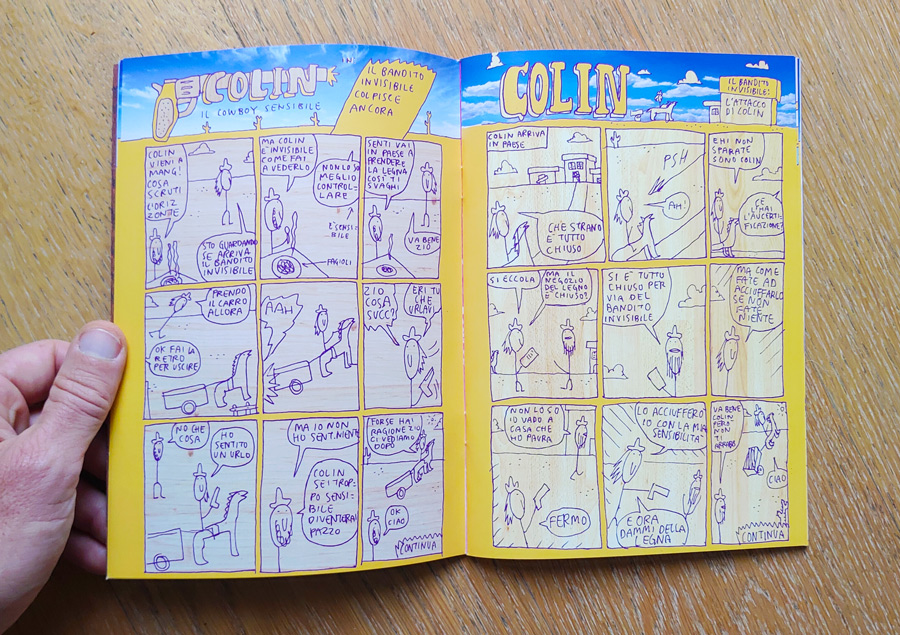 COLIN
IN
IL COWBOY SENSIBILE
IL BANDITO
INVISIBILE
COLPISCE
ANCORA
COLIN
VIENI A
MANG!
COSA
SCRUTI
L'ORIZ
ZONTE
STO GUARDANDO
SE ARRIVA
IL BANDITO
INVISIBILE
MA COLIN
E' INVISIBILE
COME FAI
A VEDERLO
NON LO SO
MEGLIO
CONTROL-
LARE
E' SENSI
BILE
FAGIOLI
SENTI VAI
IN PAESE A
PRENDERE
LA LEGNA
COSÌ TI
SVAGHI
VA BENE
ZIO
PRENDO
IL CARRO
ALLORA
OK FAI LA
RETRO
PER USCIRE
AAH
ZIO
COSA
SUCC?
ERI TU
CHE
URLAVI
NO CHE
COSA
HO
SENTITO
UN URLO
MA IO NON
HO SENT. NIENTE
COLIN
SEI TROP-
PO SENSI-
BILE
DIVENTERAI
PAZZO
FORSE HAI
RAGIONE ZIO
CI VEDIAMO
DOPO
OK
CIAO
CONTINUA
COLIN
IL BANDITO
INVISIBILE:
L'ATTACCO
DI COLIN
COLIN ARRIVA
IN PAESE
CHE STRANO
E' TUTTO
CHIUSO
PSH
AH!
EHI NON
SPARATE
SONO COLIN
CE
L'HAI
L'AUCERTI-
FICAZIONE?
SI ECCOLA
MA IL
NEGOZIO
DEL LEGNO
E' CHIUSO?
SI E' TUTTO
CHIUSO PER
VIA DEL
BANDITO
INVISIBILE
MA COME
FATE AD
ACCIUFFARLO
SE NON
FATE
NIENTE
NON LO SO
IO VADO A
CASA CHE
HO PAURA
FERMO
LO ACCIUFFERO'
IO CON LA MIA
SENSIBILITA'
E ORA
DAMMI DELLA
LEGNA
VA BENE
COLIN
PERO'
NON
TI
ARRABB
CIAO
CONTINUA